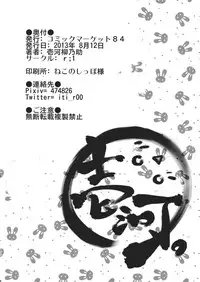 ●奥付●
発行: コミックマーケット84
発行日: 2013年 8月12日
著者: 壱河柳乃助
サークル: r;1
印刷所: ねこのしっぽ様
●連絡先●
Pixiv= 474826
Twitter= iti_r00
●ご注意●
無断転載複製禁止
壱河。